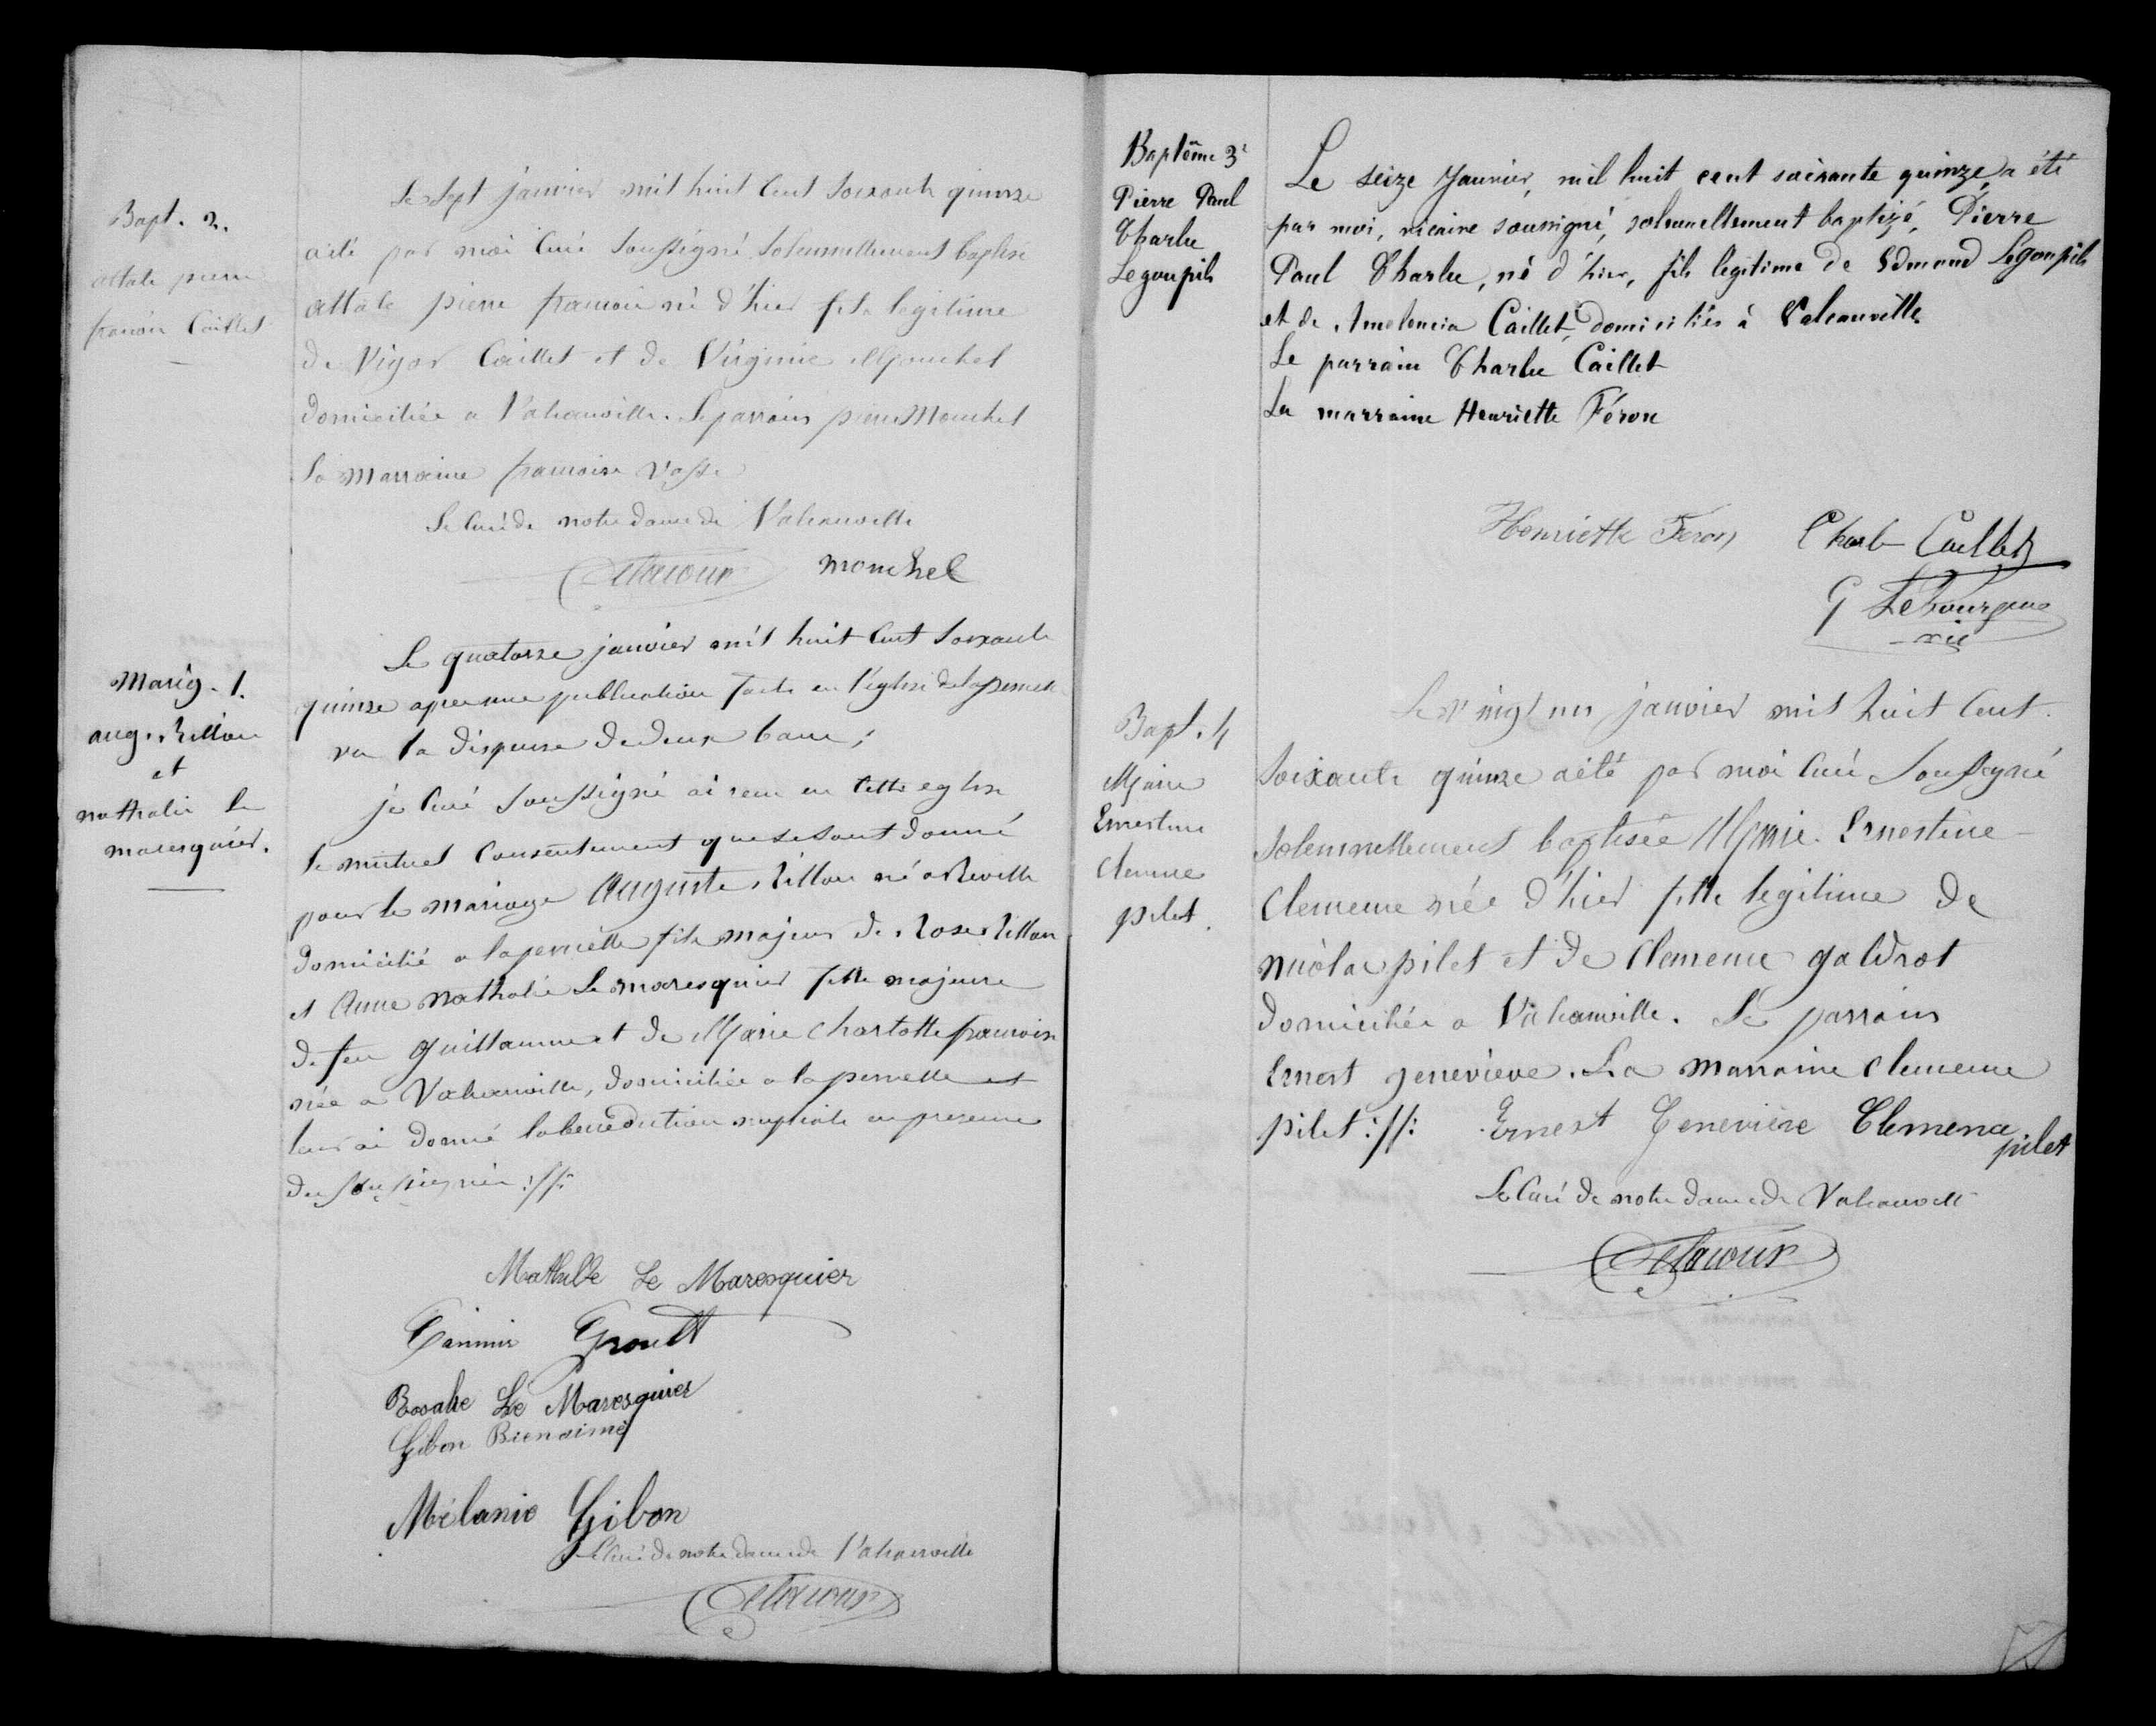 Bapt. 2.
attale pierre
francois Caillet
Le Sept janvier mil huit Cent Soixante quinze
a été par moi Curé Soussigné Solennellement baptisé
attale pierre francois né d'hier fils legitime
de Vigor Caillet et de Virginie Mouchel
domiciliés a Valcanville. Le parrain pierre Mouchel
la Marraine francoise Vasse
Le Curé de notre dame de Valcanville
Delacour mouchel
Marig. 1.
aug. Rillon
et
nathalie Le
maresquier.
Le quatorze janvier mil huit Cent Soixante
quinze apres une publication faite en l'église de la pernelle
vu la dispense de deux bans;
je Curé Soussigné ai recu en Cette eglise
le mutuel Consentement que se sont donné
pour le mariage Auguste Rillon né a Reville
domicilié a la pernelle fils majeur de Rose Rillon
et Anne Nathalie Le maresquier fille majeure
de feu Guillaume et de Marie Charlotte francoise
née a Valcanville, domiciliée a la pernelle et
leur ai donné la benediction nuptiale en presence
des Soussignés ://:
Mathilde Le Maresquier
Casimir Groult
Rosalie Le Maresquier
Gibon Bienaimé
Mélanie Gibon
Le Curé de notre dame de Valcanville
Delacour
Baptême 3e
Pierre Paul
Charles
Legoupils
Le seize Janvier, mil huit cent soixante quinze, a été
par moi, vicaire soussigné, solennellement baptizé, Pierre
Paul Charles, né d'hier, fils legitime de Edmond Legoupils
et de Amelencia Caillet, domiciliés à Valcanville.
Le parrain Charles Caillet
La marraine Henriette Féron
Henriette Feron Charles Caillet
G Lebourgeois
vic
Bapt. 4
Marie
Ernestine
Clemence
pilet.
Le vingt un janvier mil huit Cent
Soixante quinze a été par moi Curé Soussigné
Solennellement baptisée Marie Ernestine
Clemence née d'hier fille legitime de
nicolas pilet et de Clemence galdrat
domiciliés a Valcanville. Le parrain
Ernest genevieve. La marraine Clemence
pilet ://: Ernest Genevieve Clemence
pilet
Le Curé de notre dame de Valcanville
Delacour